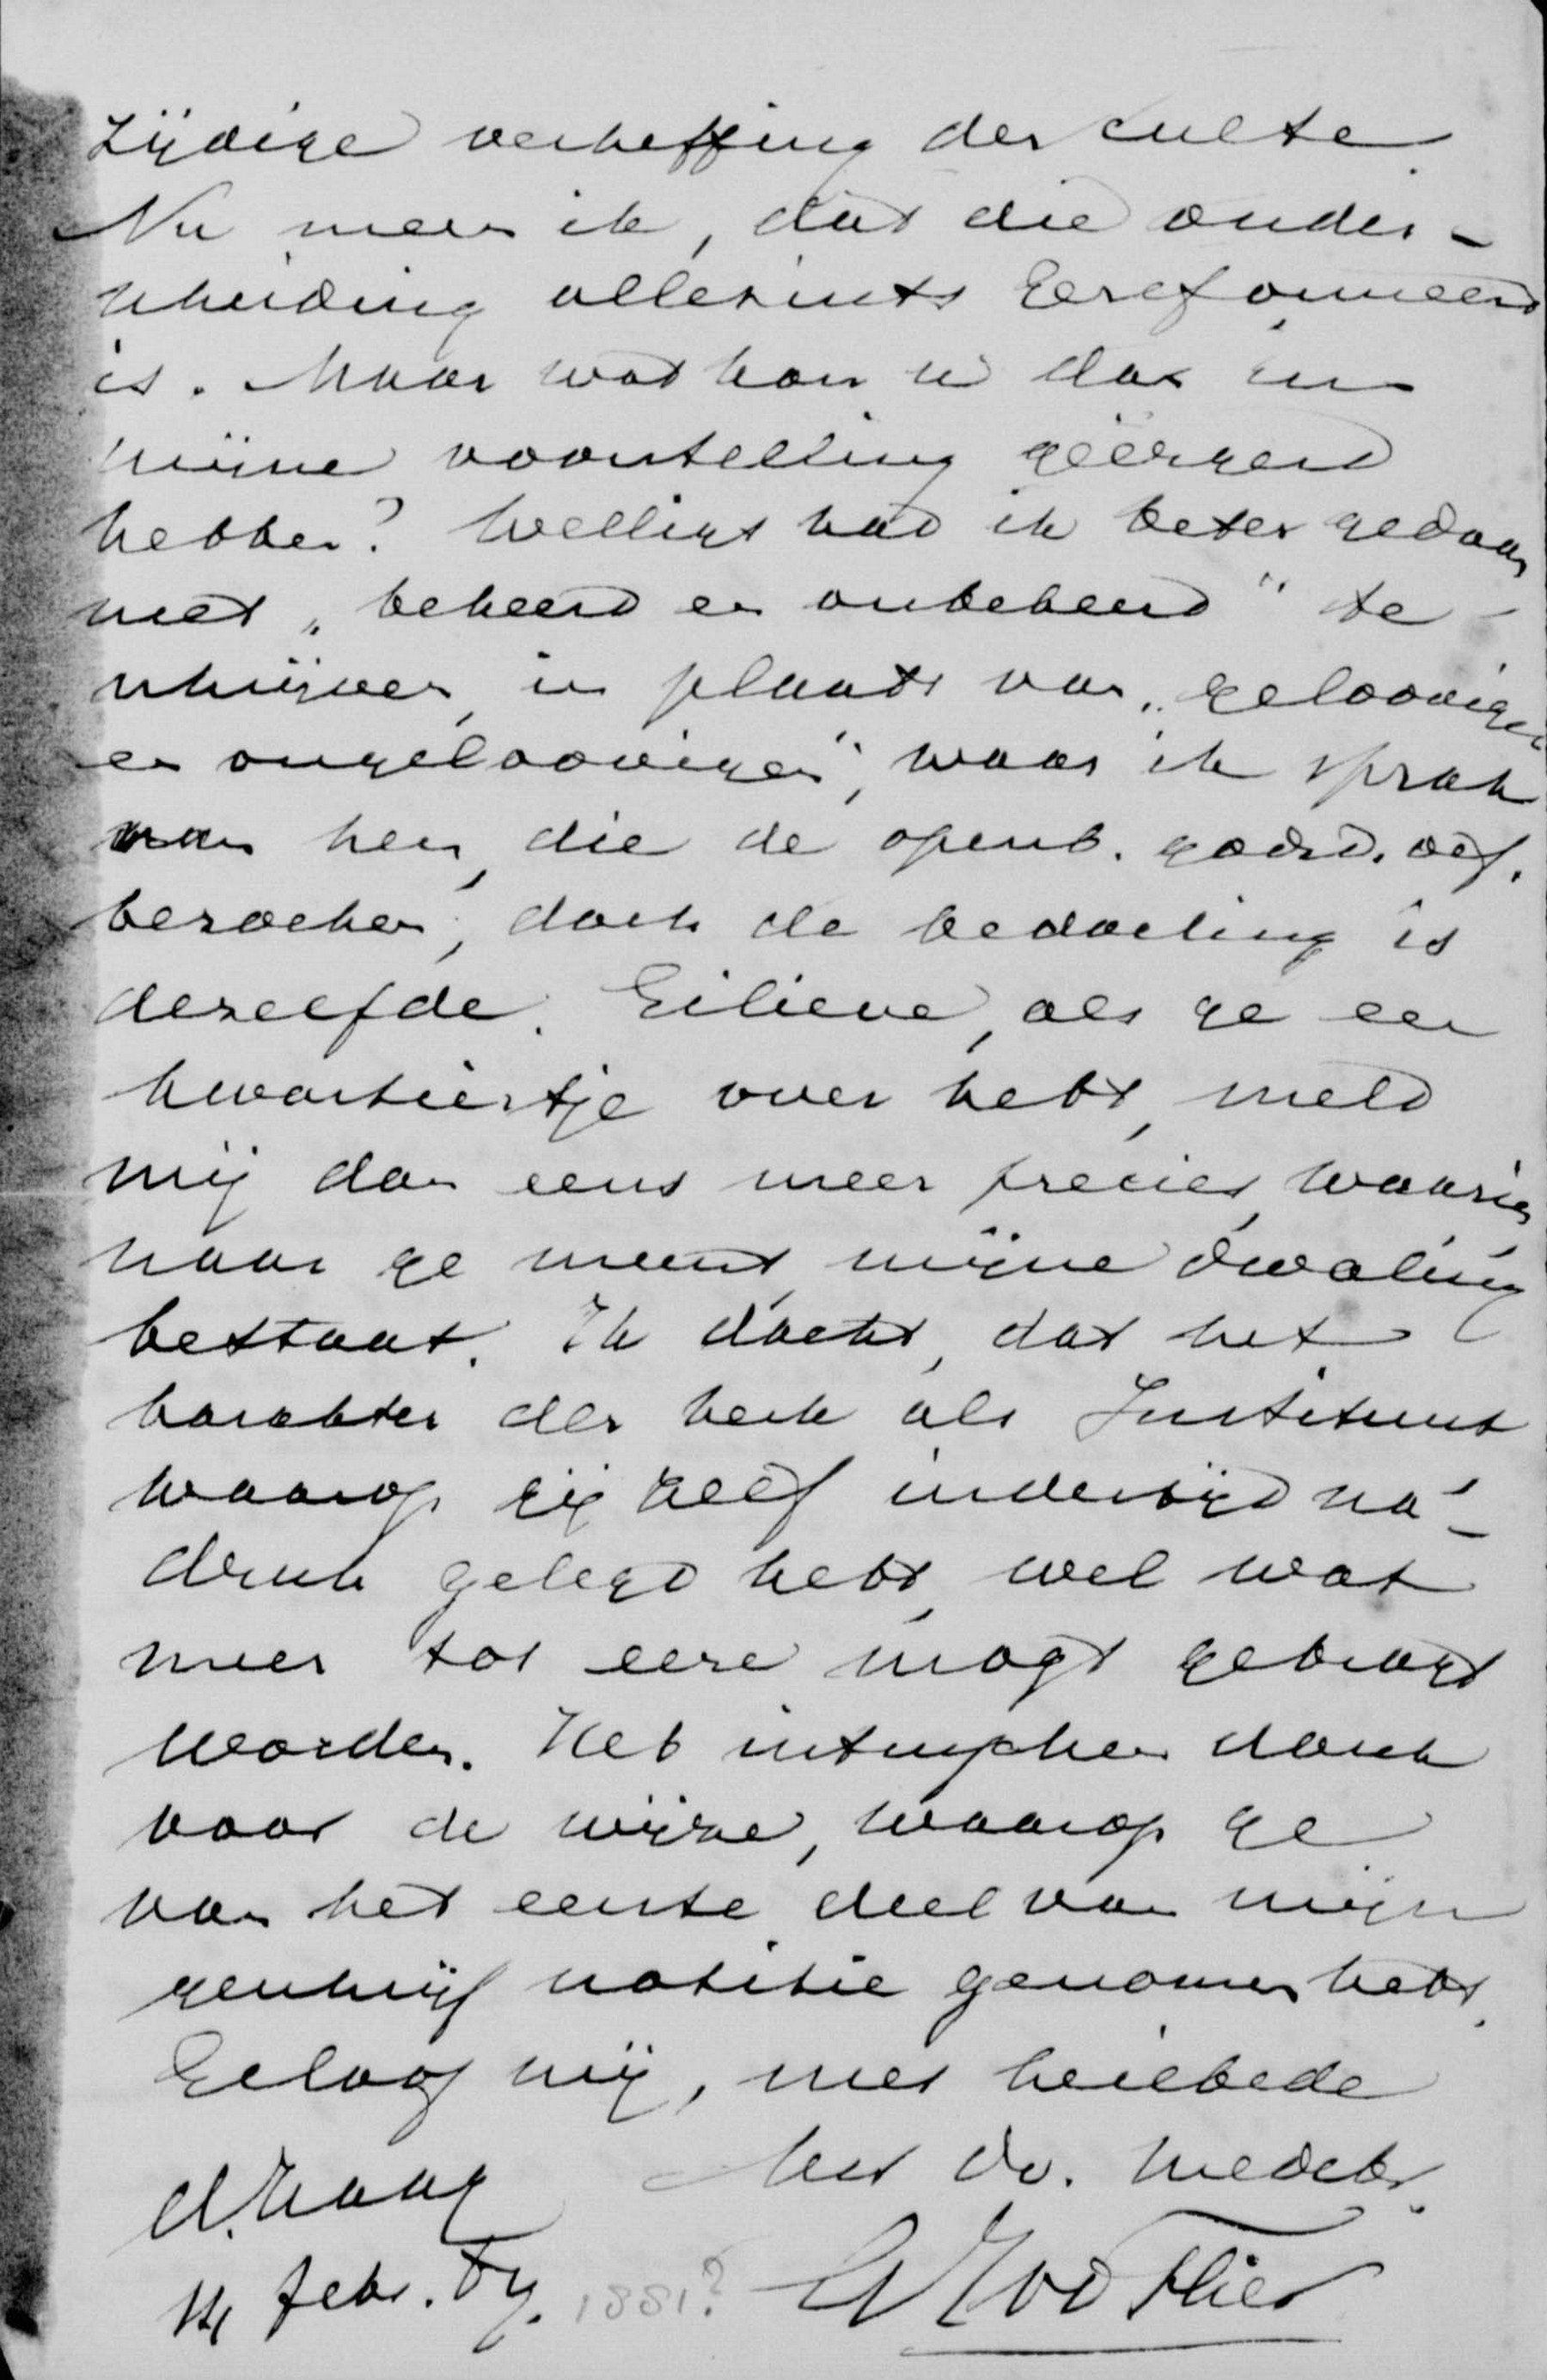 zijdige verheffing der culte
Nu meen ik, dat die onder-
scheiding allezints Gereformeerd
is. Maar wat kan u dan in
mijne voorstelling geërgerd
hebben? Welligt had ik beter gedaan
met „bekeerd en onbekeerd" te
schrijven, in plaats van „geloovigen
en ongeloovigen", waar ik sprak
van hen, die de openb. godsd. oef.
bezoeken, doch de bedoeling is
dezelfde. Eilieve, als ge een
kwartiertje over hebt, meld
mij dan eens meer precies, waarin
naar ge meent, mijne dwaling
bestaat. Ik dacht, dat het
karakter der kerk als Instituut
waarop gij zelf indertijd na-
druk gelegd hebt, wel wat
meer tot eere mogt gebragt
worden. Heb intusschen dank
voor de wijze, waarop ge
van het eerste deel van mijn
geschrijf notitie genomen hebt.
Geloof mij, met heilbede
Uw dv. medebr.
's Haag
14 febr. 1881?
vd Flier